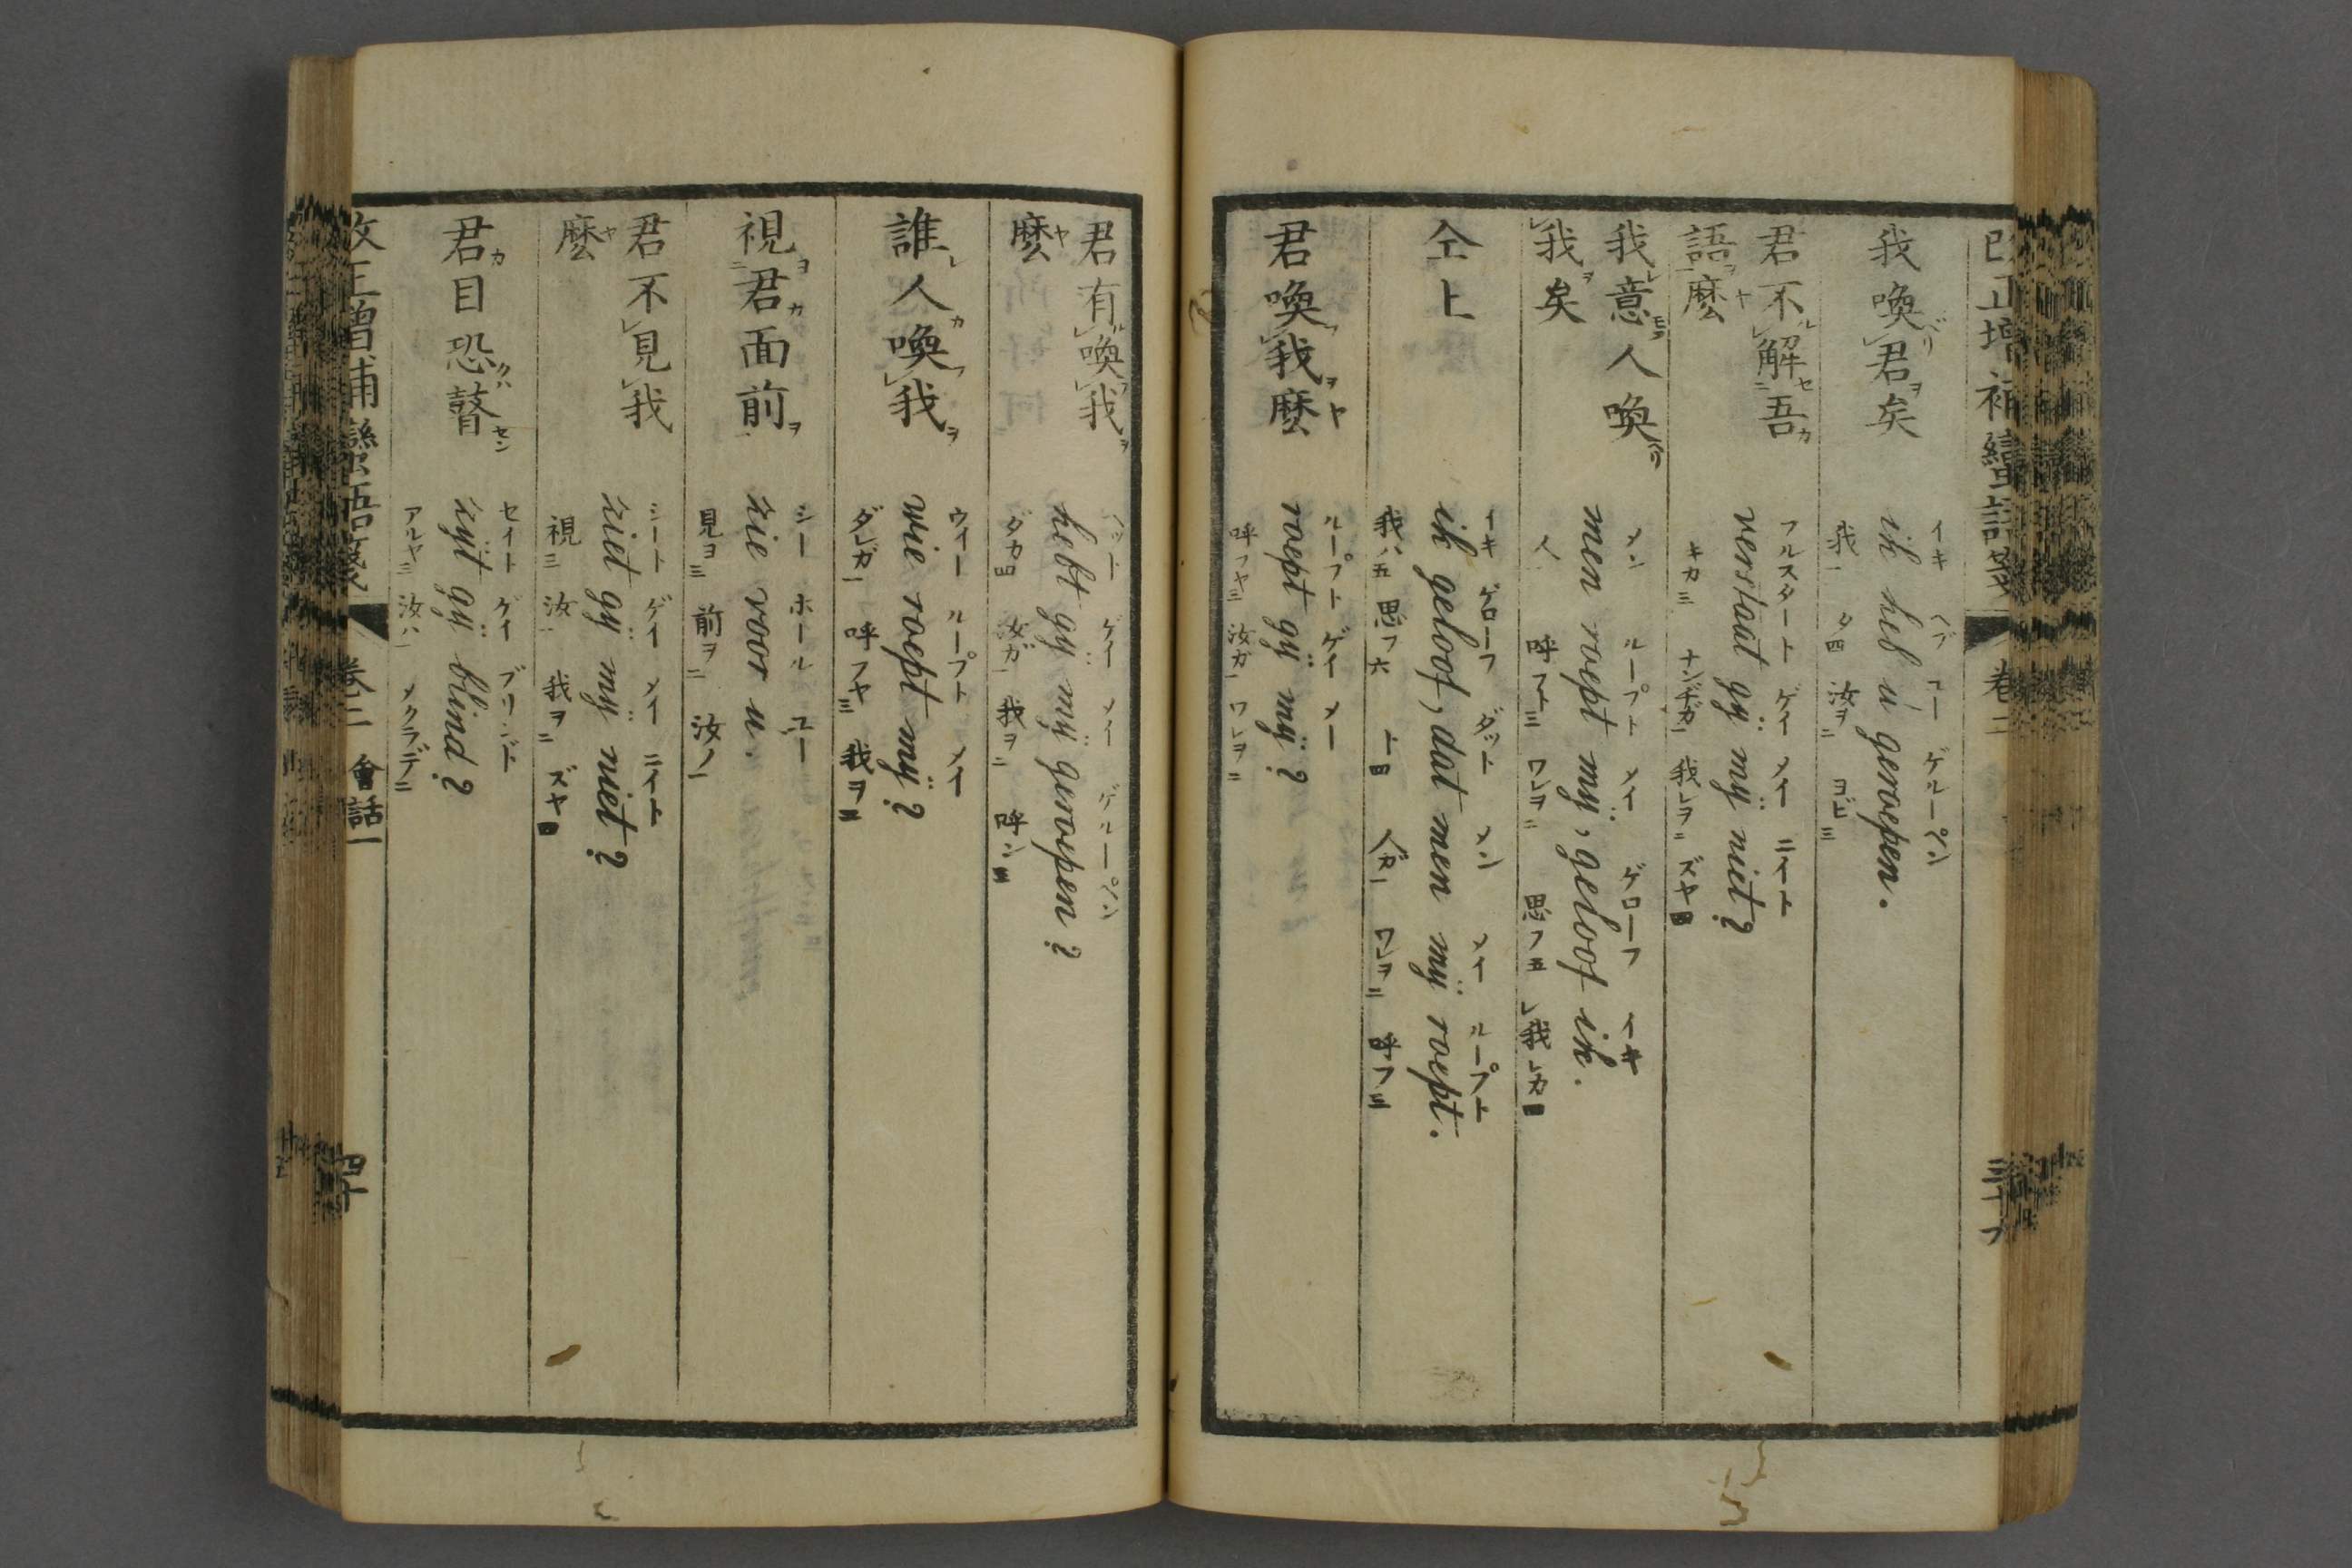 改正增補蠻語箋 卷二
我喚君矣
イキ ヘブ ユー ゲルーペン
ik heb u geroepen.
我一 タ四 汝ヲ二 ヨビ三
君不解吾
語麼
フルスタート ゲイ メイ ニイト
verstaat gÿ mÿ niet?
キカ三 ナンヂガ一 我レヲ二 ズヤ四
我意人喚
我矣
メン ループト メイ ゲローフ イキ
men roept mÿ, geloof ik.
人一 呼フト三 ワレヲ二 思フ五 我レカ四
仝上
イキ ゲローフ ダット メン メイ ループト
ik geloof, dat men mÿ roept.
我ハ五 思フ六 ト四 人ガ一 ワレヲ二 呼フ三
君喚我麼
ループト ゲイ メー
roept gÿ mÿ?
呼フヤ三 汝ガ一 ワレヲ二
君有喚我
麼
ヘット ゲイ メイ ゲルーペン
hebt gÿ mÿ geroepen?
タカ四 汝ガ一 我ヲ二 呼ン三
誰人喚我
ウイー ループト メイ
wie roept mÿ?
ダレガ一 呼フヤ三 我ヲ二
視君面前
シー ホール ユー
zie voor u.
見ヨ三 前ヲ二 汝ノ一
君不見我
麼
シート ゲイ メイ ニイト
ziet gÿ mÿ niet?
視三 汝一 我ヲ二 ズヤ四
君目恐瞽
セイト ゲイ ブリンド
zÿt gÿ blind?
アルヤ三 汝ハ一 メクラデ二
改正增補蠻語箋 卷二 會話一 四十